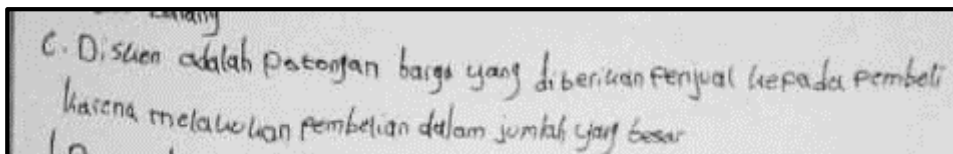 C. Diskon adalah potongan harga yang diberikan penjual kepada pembeli
karena melakukan pembelian dalam jumlah yang besar